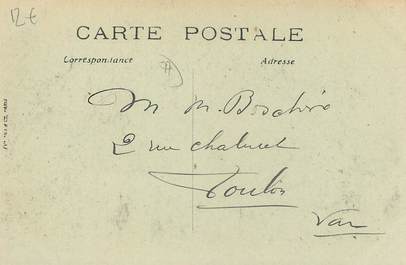 12€
CARTE POSTALE
Correspondance
Adresse
M M.
2 rue chalucet
Toulon
Var